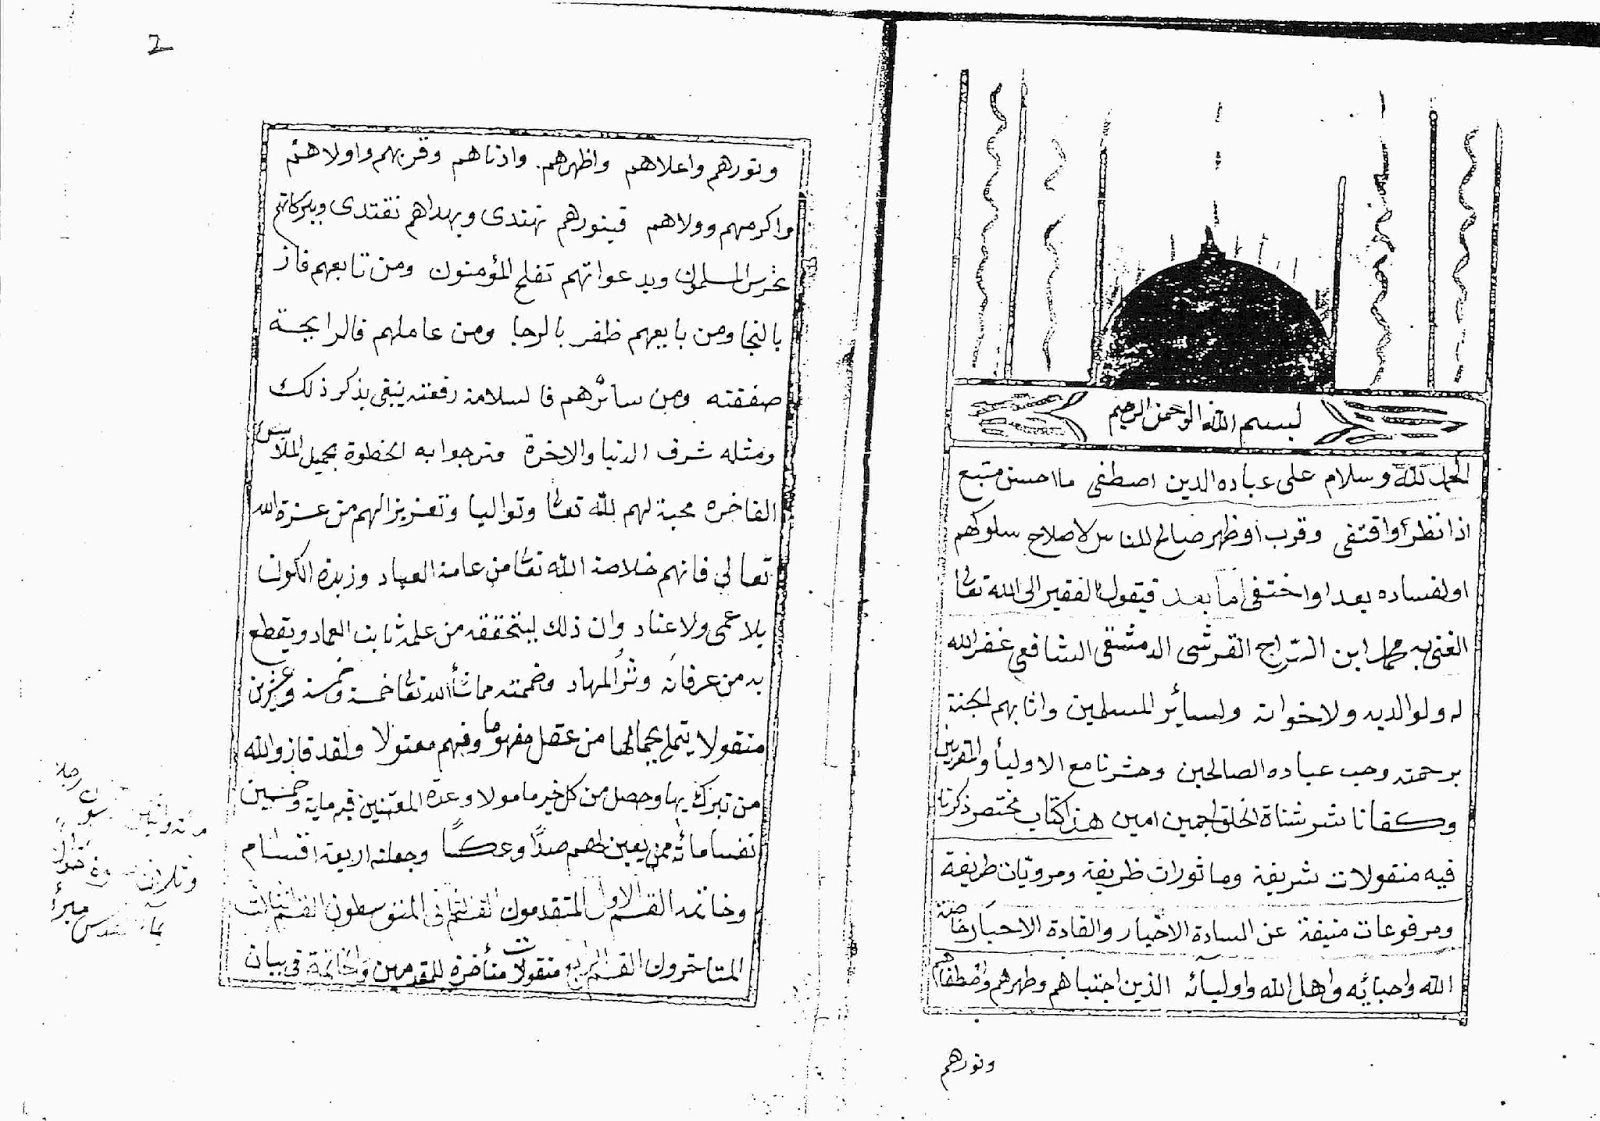 بسم الله الرحمن الرحيم
الحمد لله وسلام على عباده الدين اصطفى ما احسن متبع
اذا نظر أو اقتفى وقرب أو ظهر صالح للناس لاصلاح سلوكهم
او لفساده بعدا واختفى اما بعد فيقول الفقير الى الله تعالى
الغنى به محمد ابن السراج القرشى الدمشقى الشافعي غفر الله
له ولوالديه ولاخوانه ولساير المسلمين واثابهم الجنة
برحمته وحب عباده الصالحين وحشرنا مع الاوليأ والمقربين
وكفانا شر شناة الخلق اجمين امين هذا كتاب مختصر ذكرنا
فيه منقولات شريفة وماثورات ظريفة ومرويات طريفة
ومرفوعات منيفة عن السادة الاخيار والقادة الاحبار خاصة
الله واحبايه واهل الله واوليائه الذين اجتباهم وطهرهم واصطفاهم
ونورهم
2
ونورهم واعلاهم واظهرهم. وادناهم وقربهم واولاهم
واكرمهم وولاهم فبنورهم نهتدى وبهداهم نقتدى وببركاتهم
تحرس المسلمون وبدعواتهم تفلح المؤمنون ومن تابعهم فاز
بالنجا ومن بايعهم ظفر بالرجا ومن عاملهم فالرابحة
صفقته ومن سائرهم فالسلامة رفعته يبقى بذكر ذلك
ومثله شرف الدنيا والاخرة وترجوا به الحظوة بجميل الملابس
الفاخره محبة لهم لله تعالى وتواليا وتعزيزا لهم من عزة الله
تعالى فانهم خلاصة الله تعالى من عامة العباد وزبدة الكون
بلا عمى ولا عناد وان ذلك ليتحققه من علمه ثابت العماد ويقطع
به من عرفانه وثر المهاد وضمنته مماشأ الله تعالى خمسة وعشرين
منقولا يتملى بجمالها من عقل مفهوما وفهم معقولا ولقد فاز والله
من تبرك بها وحصل من كل خير مامولا وعدة المعتنين فيه ماية وخمسين
نفسا مائة ممن يعين لهم صدا وعكسا وجعلته اربعة اقسام
وخاتمه القسم الاول المتقدمون القسم الثانى المتوسطون القسم الثالث
المتاخرون القسم الرابع منقولات متأخرة للمقدمين والخاتمة فى بيان